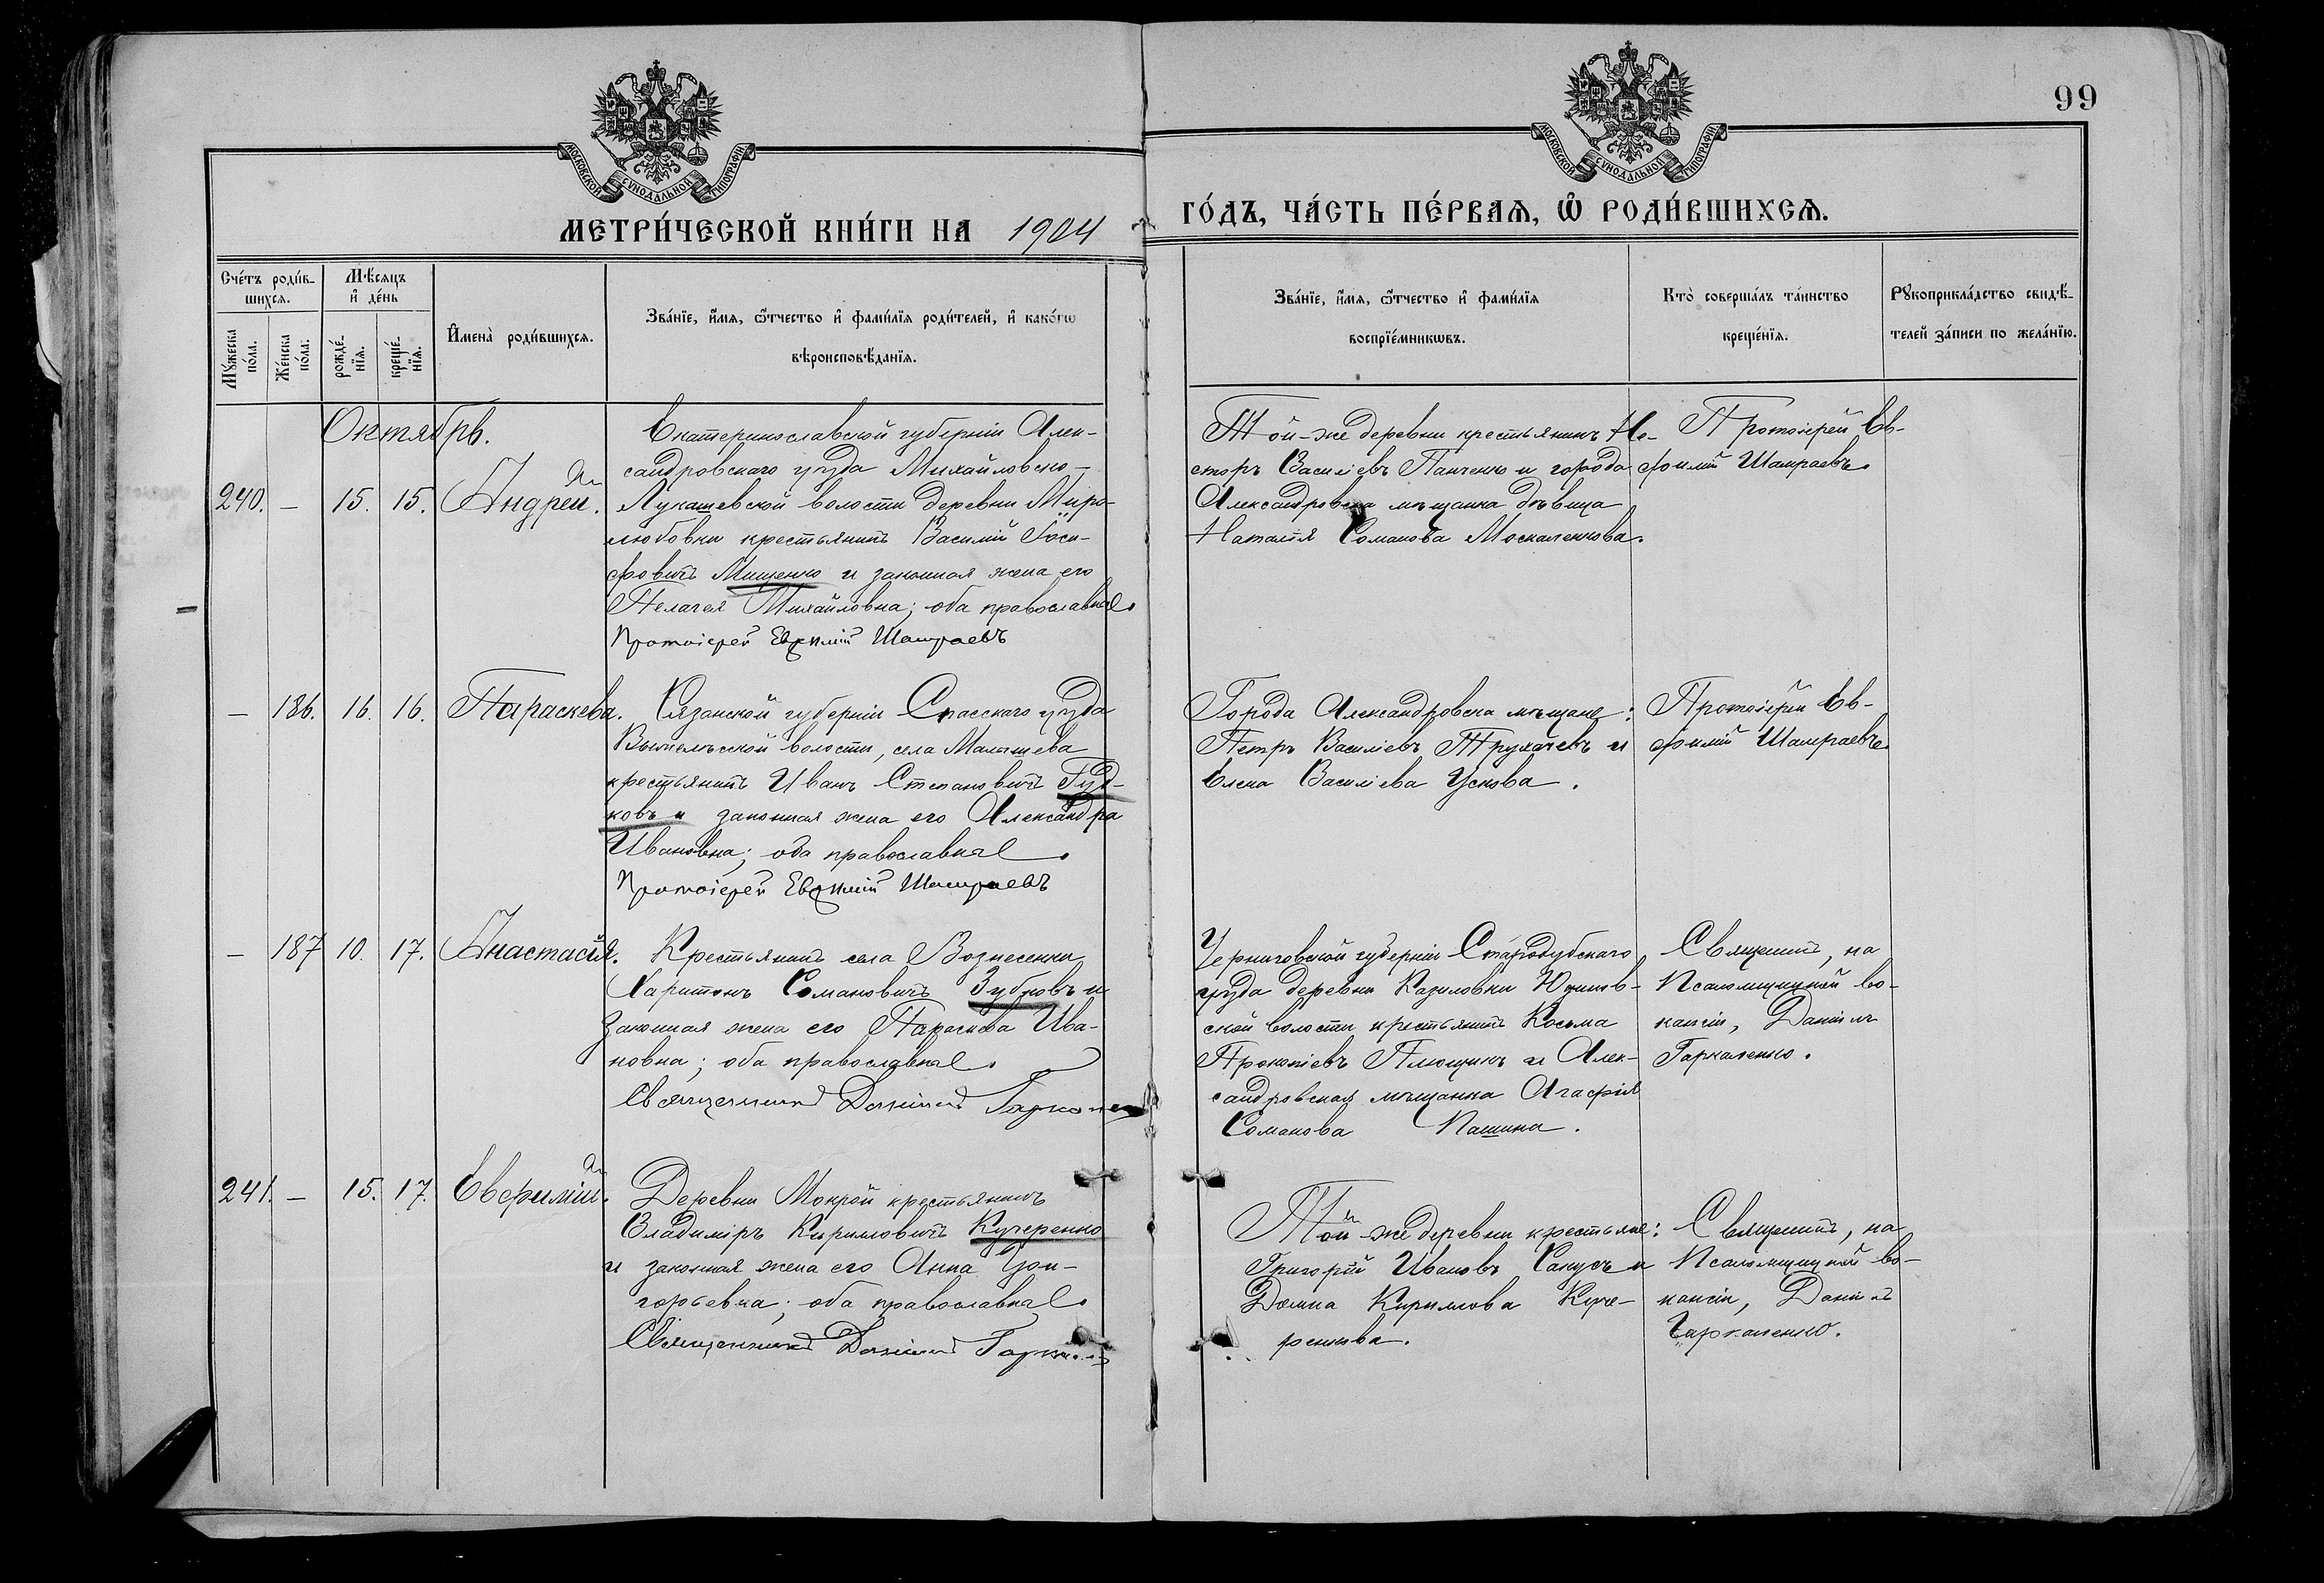 99
МОСКОВСКОЙ СУНОДАЛЬНОЙ ТИПОГРАФІИ
МОСКОВСКОЙ СУНОДАЛЬНОЙ ТИПОГРАФІИ
МЕТРИ́ЧЕСКОЙ КНИ́ГИ НА 1904
ГО́ДЪ, ЧА́СТЬ ПЕ́РВАѦ, Ѽ РОДИ́ВШИХСѦ.
Сче́тъ роди́в-
шихсѧ.
Мѣ́сѧцъ
и҆ де́нь
Мꙋ́жеска
по́ла.
Же́нска
по́ла.
рожде́-
нїѧ.
креще́-
нїѧ.
И҆мена̀ роди́вшихсѧ.
Зва́нїе, и҆́мѧ, ѻ҆́тчество и҆ фами́лїѧ роди́телей, и҆ како́гѡ
вѣроисповѣ́данїѧ.
Зва́нїе, и҆́мѧ, ѻ҆́тчество и҆ фами́лїѧ
воспрїе́мникѡвъ.
Кто̀ соверша́лъ та́инство
креще́нїѧ.
Рꙋкоприкла́дство свидѣ́-
телей за́писи по жела́нїю.
Октябрь.
240. — 15. 15. Андрей.
Екатеринославской губерніи Алек-
сандровскаго уѣзда Михайловско-
Лукашевской волости деревни Миро-
любовки крестьянинъ Василій Іоси-
фовичъ Мищенко и законная жена его
Пелагея Михайловна; оба православные.
Протоіерей Евѳимій Шамраевъ
Той-же деревни крестьянинъ Не-
сторъ Василіевъ Панченко и города
Александровска мѣщанка дѣвица
Наталія Романова Москаленкова.
Протоіерей Ев-
фимій Шамраевъ.
— 186. 16. 16. Параскева.
Рязанской губерніи Спасскаго уѣзда
волости, села Малышева
крестьянинъ Иванъ Степановичъ Гуд-
ковъ и законная жена его Александра
Ивановна; оба православные.
Протоіерей Евѳимій Шамраевъ
Города Александровска мѣщане:
Петръ Василіевъ Трухачевъ и
Елена Василіева Ускова.
Протоіерей Ев-
фимій Шамраевъ.
— 187 10. 17. Анастасія.
Крестьянинъ села Вознесенки
Харитонъ Романовичъ Зубковъ и
законная жена его Параскева Ива-
новна; оба православные.
Священникъ Даніилъ
Черниговской губерніи Стародубскаго
уѣзда деревни Казиловки
ской волости крестьянинъ Косьма
Прокопіевъ и Алек-
сандровская мѣщанка Агафія
Романова Пашина.
Священникъ, на
Псаломщицкой ва-
кансіи, Даніилъ
Гаркаленко.
241. — 15. 17. Евфимій.
Деревни Мокрой крестьянинъ
Владиміръ Кириловичъ Кучеренко
и законная жена его Анна Гри-
горьевна; оба православные.
Священникъ Даніилъ
Той-же деревни крестьяне:
Григорій Ивановъ и
Домна Кирилова Куче-
ренкова.
Священникъ, на
Псаломщицкой ва-
кансіи, Даніилъ
Гаркаленко.